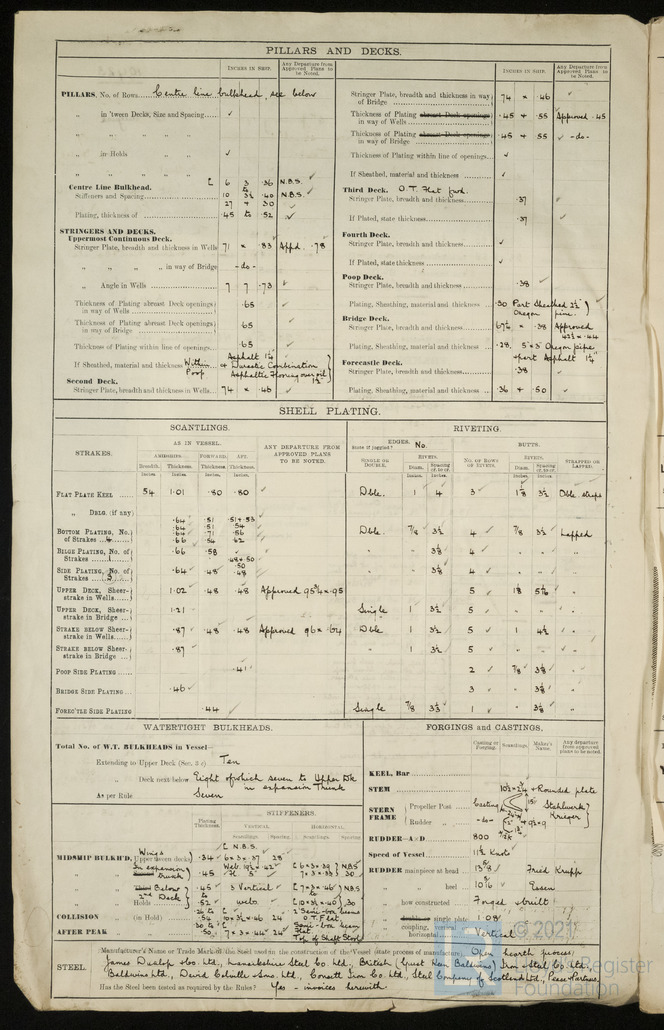 PILLARS AND DECKS.
INCHES IN SHIP.
Any Departure from Approved Plans to be Noted.
INCHES IN SHIP.
Any Departure from Approved Plans to be Noted.
PILLARS, No. of Rows..... Centre line bulkhead, see below
„ in 'tween Decks, Size and Spacing ✓
„ „ „
„ in Holds ✓
„ „ „
Centre Line Bulkhead.
Stiffeners and Spacing
[ 6 3 .36 N.B.S.
to
10 3½ .40 N.B.S.
27 + 30
Plating, thickness of .45 to .52
STRINGERS AND DECKS.
Uppermost Continuous Deck.
Stringer Plate, breadth and thickness in Wells 71 × .83 Appd. .78
„ „ „ „ in way of Bridge -do-
„ Angle in Wells 7 7 .73
Thickness of Plating abreast Deck openings in way of Wells .65
Thickness of Plating abreast Deck openings in way of Bridge .65
Thickness of Plating within line of openings .65
If Sheathed, material and thickness Within Poop
Asphalt 1¼"
Combination
1½"
Second Deck.
Stringer Plate, breadth and thickness in Wells 74 × .46
Stringer Plate, breadth and thickness in way of Bridge 74 × .46
Thickness of Plating abreast Deck openings in way of Wells .45 + .55 Approved .45
Thickness of Plating abreast Deck openings in way of Bridge .45 + .55 -do-
Thickness of Plating within line of openings ✓
If Sheathed, material and thickness ✓
Third Deck. O.T. Flat ford.
Stringer Plate, breadth and thickness .37
If Plated, state thickness .37
Fourth Deck.
Stringer Plate, breadth and thickness ✓
If Plated, state thickness ✓
Poop Deck.
Stringer Plate, breadth and thickness .38
Plating, Sheathing, material and thickness .30 Part Sheathed 2½" Oregon pine.
Bridge Deck.
Stringer Plate, breadth and thickness 67¼ × .38 Approved
Plating, Sheathing, material and thickness .28. 5"×3" Oregon pine
+ part Asphalt 1¼"
Forecastle Deck.
Stringer Plate, breadth and thickness .38
Plating, Sheathing, material and thickness .36 + .50
SHELL PLATING.
SCANTLINGS.
RIVETING.
STRAKES.
AS IN VESSEL.
AMIDSHIPS.
FORWARD.
AFT.
Breadth.
Thickness.
Thickness.
Thickness.
ANY DEPARTURE FROM APPROVED PLANS TO BE NOTED.
EDGES. No.
State if joggled?
SINGLE OR DOUBLE.
RIVETS.
Diam.
Spacing cr. to cr.
BUTTS.
No. OF ROWS OF RIVETS.
RIVETS.
Diam.
Spacing cr. to cr.
STRAPPED OR LAPPED.
FLAT PLATE KEEL 54 1.01 .80 .80 Dble. 1 4 3 1⅛ 3½ Dble straps
„ DBLG. (if any)
BOTTOM PLATING, No. of Strakes 4
.64 .51 .51+.53
.64 .51 .54
.64 .71 .56
.66 .54 .62
Dble. ⅞ 3½ 4 ⅞ 3½ Lapped
BILGE PLATING, No. of Strakes 1 .66 .58 .48+.50 „ 3⅜ 4 „ „
SIDE PLATING, No. of Strakes 3 .64 .48 .50 .48 „ 3⅜ 4 „ „
UPPER DECK, Sheer-strake in Wells 1.02 .48 .48 Approved 95¾×.95 5 1⅛ „
UPPER DECK, Sheer-strake in Bridge 1.21 Single 1 3½ 5 „ „
STRAKE BELOW Sheer-strake in Wells .87 .48 .48 Approved 96 × .64 Dble 1 3½ 5 1 4½ „
STRAKE BELOW Sheer-strake in Bridge .87 „ 1 3½ 5 „ „
POOP SIDE PLATING .41 2 ⅞ 3⅛ „
BRIDGE SIDE PLATING .46 3 „ 3⅛ „
FOREC'TLE SIDE PLATING .44 Single ⅞ 3½ 1 „ 3⅛ „
WATERTIGHT BULKHEADS.
Total No. of W.T. BULKHEADS in Vessel—
Extending to Upper Deck (Sec. 3 c) Ten
„ Deck next below Eight of which seven to Upper Dk in expansion Trunk
As per Rule Seven
STIFFENERS.
Plating Thickness.
VERTICAL.
HORIZONTAL.
Scantlings.
Spacing.
Scantlings.
Spacing.
[ N.B.S.
MIDSHIP BULKH'D, Wings Upper 'tween decks .34 6 × 3 × .37 28 [ 6×3×.39 N.B.S
In expansion trunk .45 30
Below 2nd Deck .45 3 Vertical [ 7×3×.46 N.B.S
„ Holds .52 webs [ 10×3½×.40 30
COLLISION „ (in Hold) .54 10×3½×.46 24 2 Semi-box beams
O.T. Flat.
AFTER PEAK „ .50 7 × 3 × .44 24 Semi-box beam
Flat
Top of Shaft Stool
FORGINGS and CASTINGS.
Casting or Forging.
Scantlings.
Maker's Name.
Any departure from approved plans to be noted.
KEEL, Bar
STEM 10½ × 2¾ + Rounded plate
STERN FRAME
Propeller Post Casting Stahlwerk Krieger
Rudder „ -do- 9½×9
RUDDER—A×D 800
Speed of Vessel 11½ Knots
RUDDER mainpiece at head 13⅝ Fried Krupp
„ „ heel 10⅛ Essen
„ how constructed Forged & built
„ double or single plate 1.08
„ coupling, vertical or horizontal Vertical
STEEL.
Manufacturer's Name or Trade Mark of the Steel used in the construction of the Vessel (state process of manufacture) Open hearth process
James Dunlop & Co. Ltd., Lanarkshire Steel Co Ltd., British (Guest Keen Baldwins) Iron & Steel Co. Ltd.,
Baldwins Ltd., David Colville & Sons. Ltd., Consett Iron Co. Ltd., Steel Company of Scotland Ltd.,
Has the Steel been tested as required by the Rules? Yes - invoices herewith.
© 2021
Lloyd's Register
Foundation